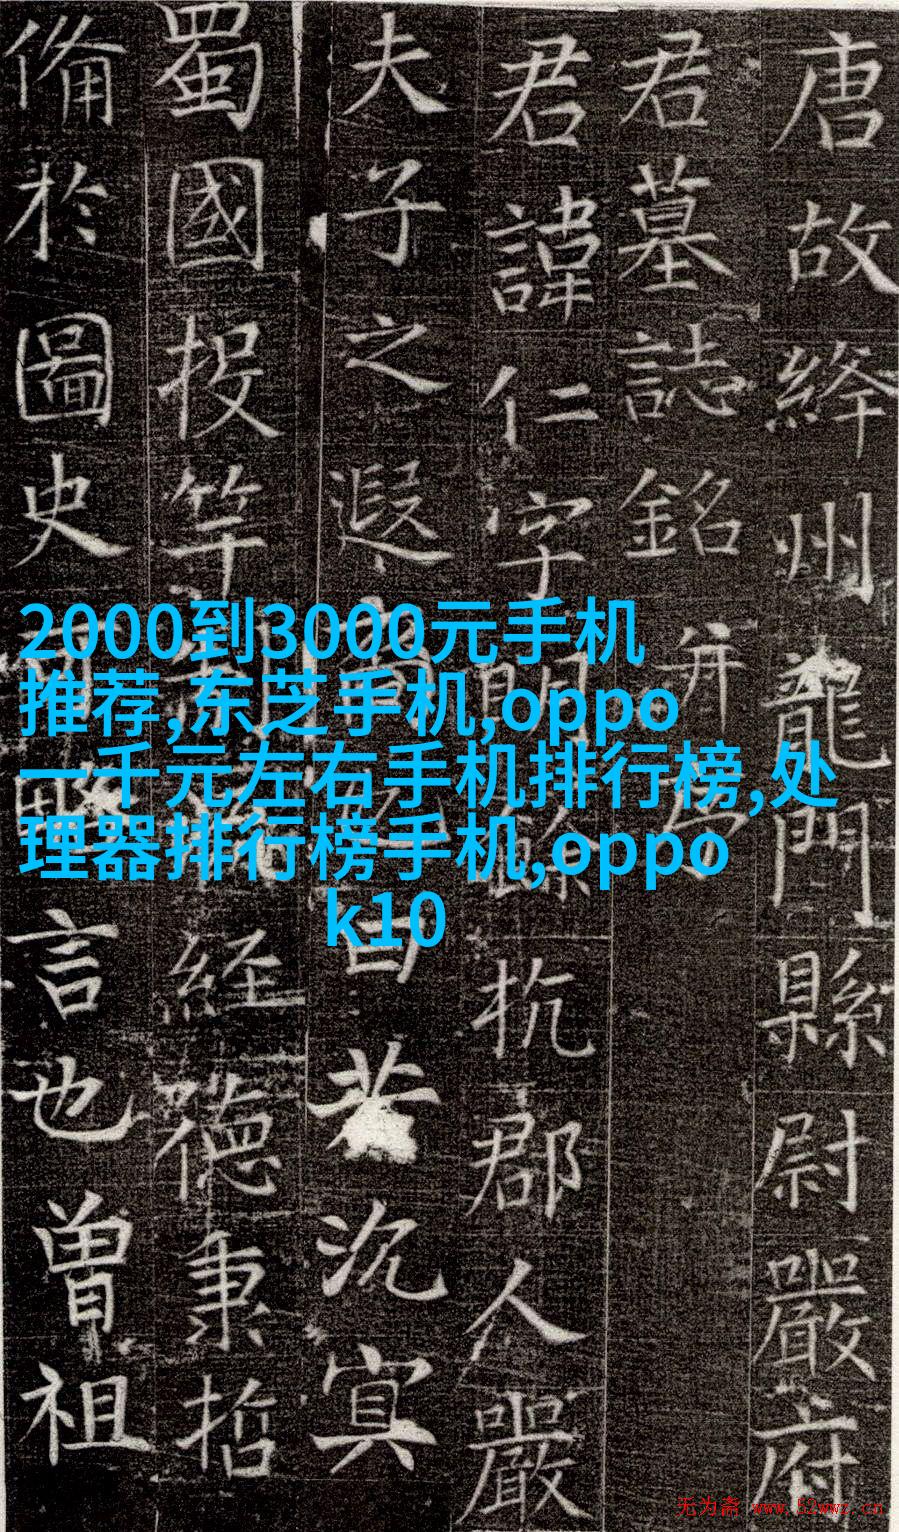 唐故絳州龍門縣尉嚴府
君墓誌銘并
君諱仁字明餘杭郡人嚴
夫子之遐裔曰若沉冥
蜀國投竿經德秉哲
備於圖史言也曾祖
2000到3000元手机
推荐,东芝手机,oppo
一千元左右手机排行榜,处
理器排行榜手机,oppo
k10
无为斋 www.52wwz.cn